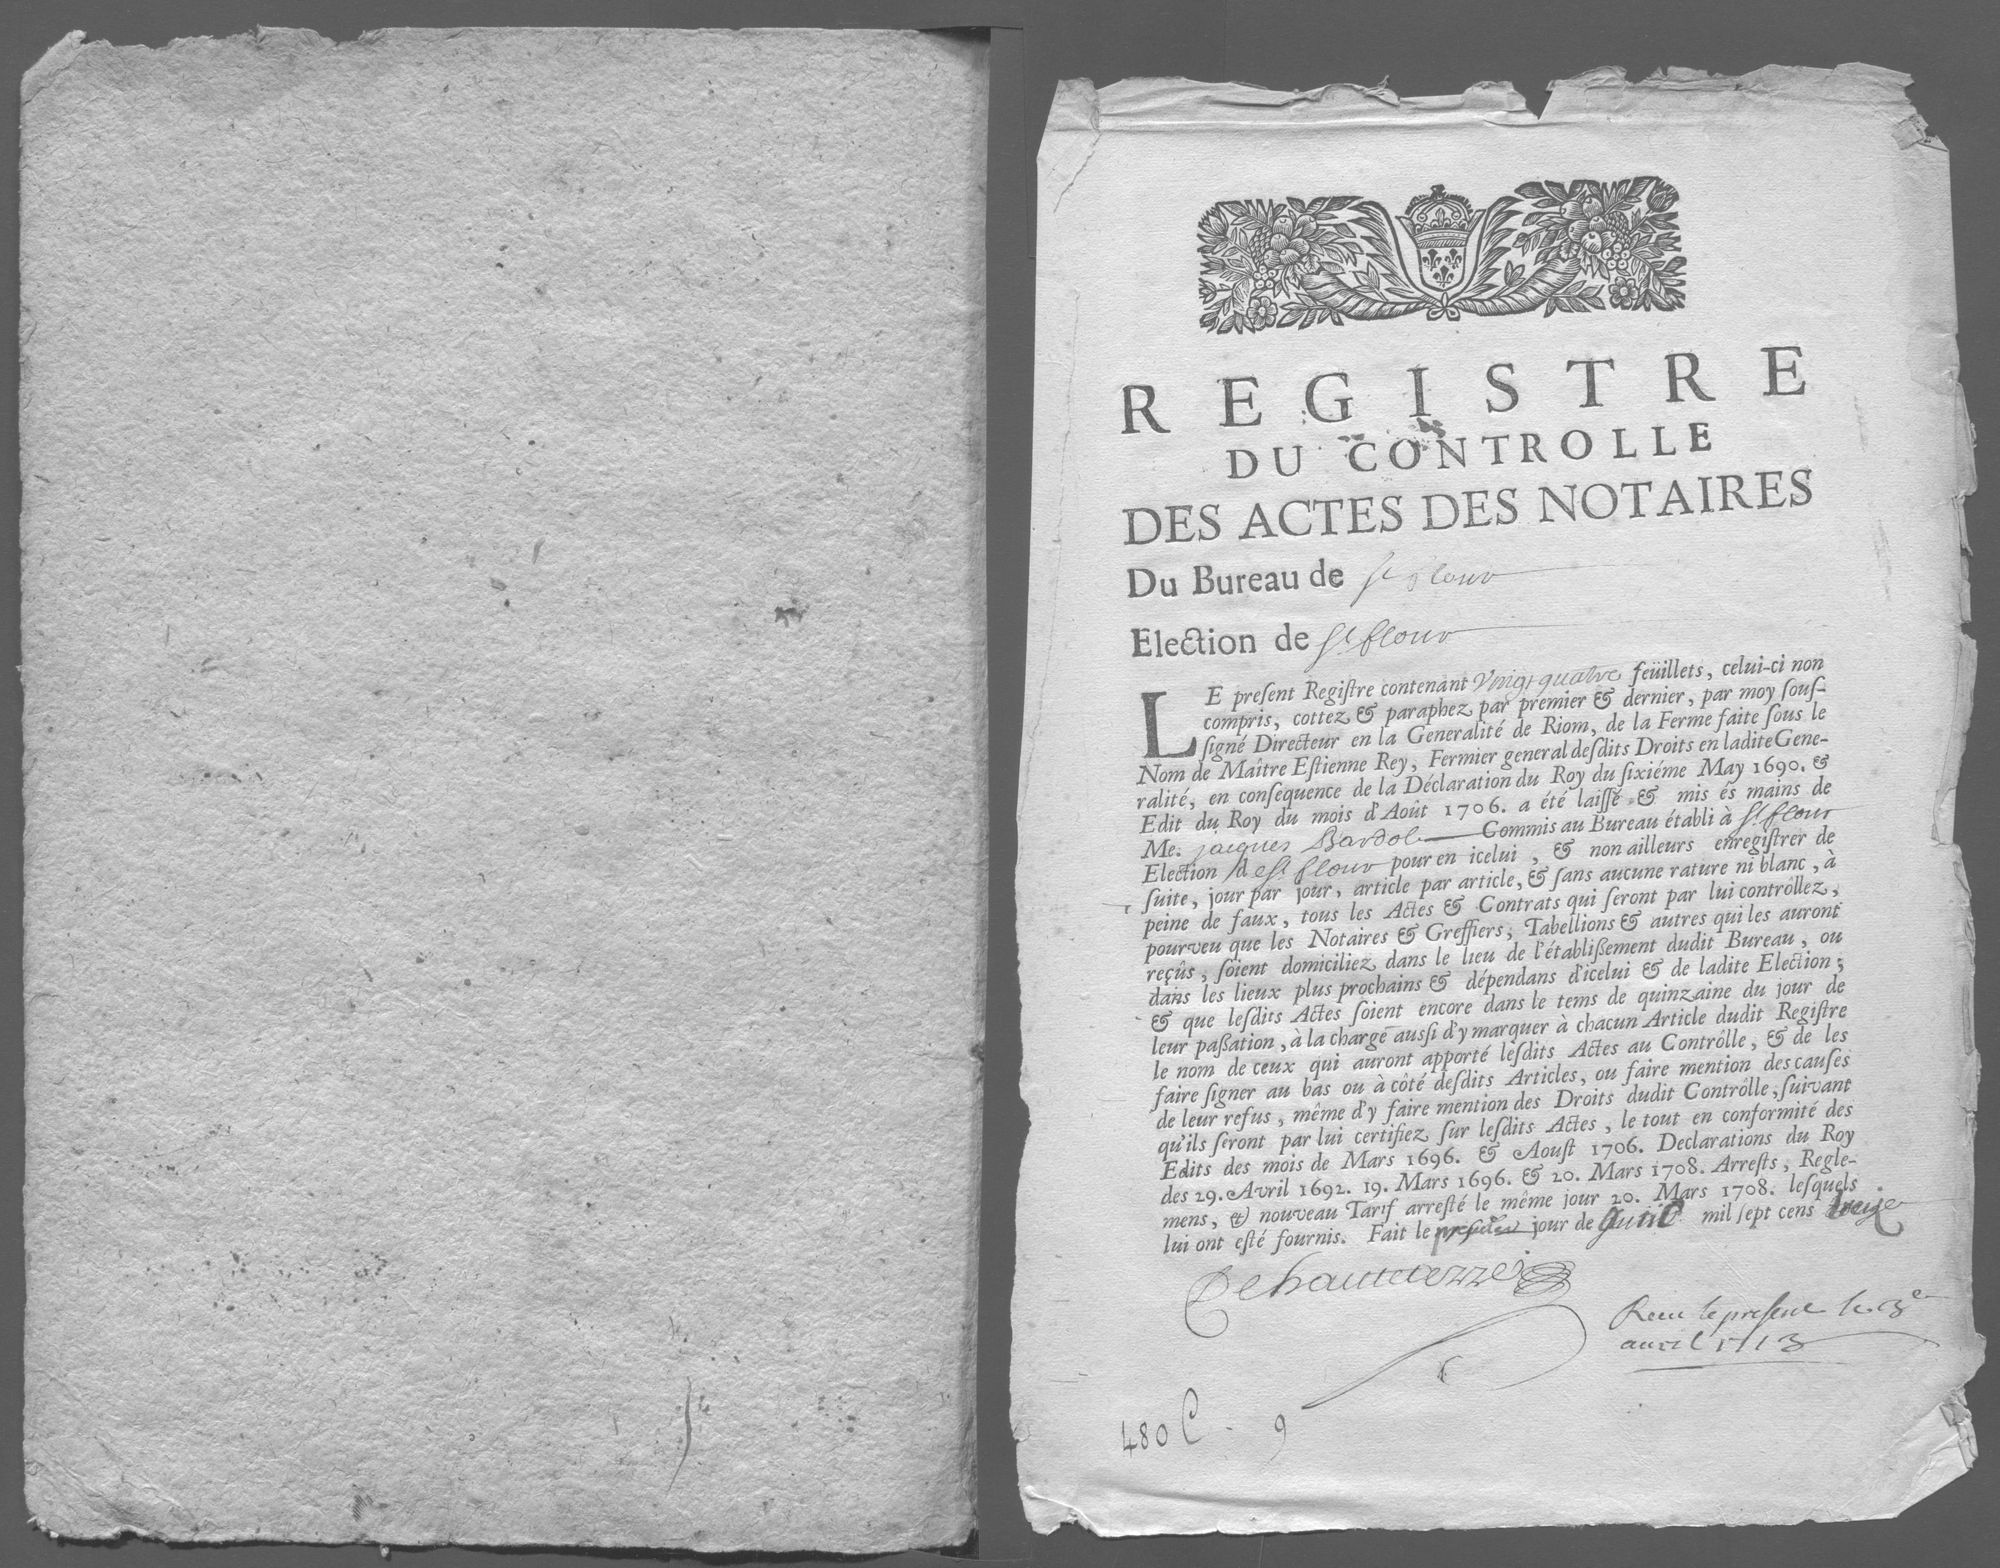 REGISTRE
DU CONTROLLE
DES ACTES DES NOTAIRES
Du Bureau de St flour
Election de St flour
LE present Registre contenant vingt quatre feüillets, celui-ci non
compris, cottez & paraphez par premier & dernier, par moy sous-
signé Directeur en la Generalité de Riom, de la Ferme faite sous le
Nom de Maître Estienne Rey, Fermier general desdits Droits en ladite Gene-
ralité, en consequence de la Déclaration du Roy du sixiéme May 1690. &
Edit du Roy du mois d'Août 1706. a été laissé & mis és mains de
Me. jacques Bardol Commis au Bureau établi à St flour
Election de St flour pour en icelui, & non ailleurs enregistrer de
suite, jour par jour, article par article, & sans aucune rature ni blanc, à
peine de faux, tous les Actes & Contrats qui seront par lui contrôllez,
pourveu que les Notaires & Greffiers, Tabellions & autres qui les auront
reçûs, soient domiciliez dans le lieu de l'établissement dudit Bureau, ou
dans les lieux plus prochains & dépendans d'icelui & de ladite Election;
& que lesdits Actes soient encore dans le tems de quinzaine du jour de
leur passation, à la charge aussi d'y marquer à chacun Article dudit Registre
le nom de ceux qui auront apporté lesdits Actes au Contrôlle, & de les
faire signer au bas ou à côté desdits Articles, ou faire mention des causes
de leur refus, même d'y faire mention des Droits dudit Contrôlle, suivant
qu'ils seront par lui certifiez sur lesdits Actes, le tout en conformité des
Edits des mois de Mars 1696. & Aoust 1706. Declarations du Roy
des 29. Avril 1692. 19. Mars 1696. & 20. Mars 1708. Arrests, Regle-
mens, & nouveau Tarif arresté le même jour 20. Mars 1708. lesquels
lui ont esté fournis. Fait le jour de avril mil sept cens treize
Receu le present le 13e
avril 1713
480 C. 9